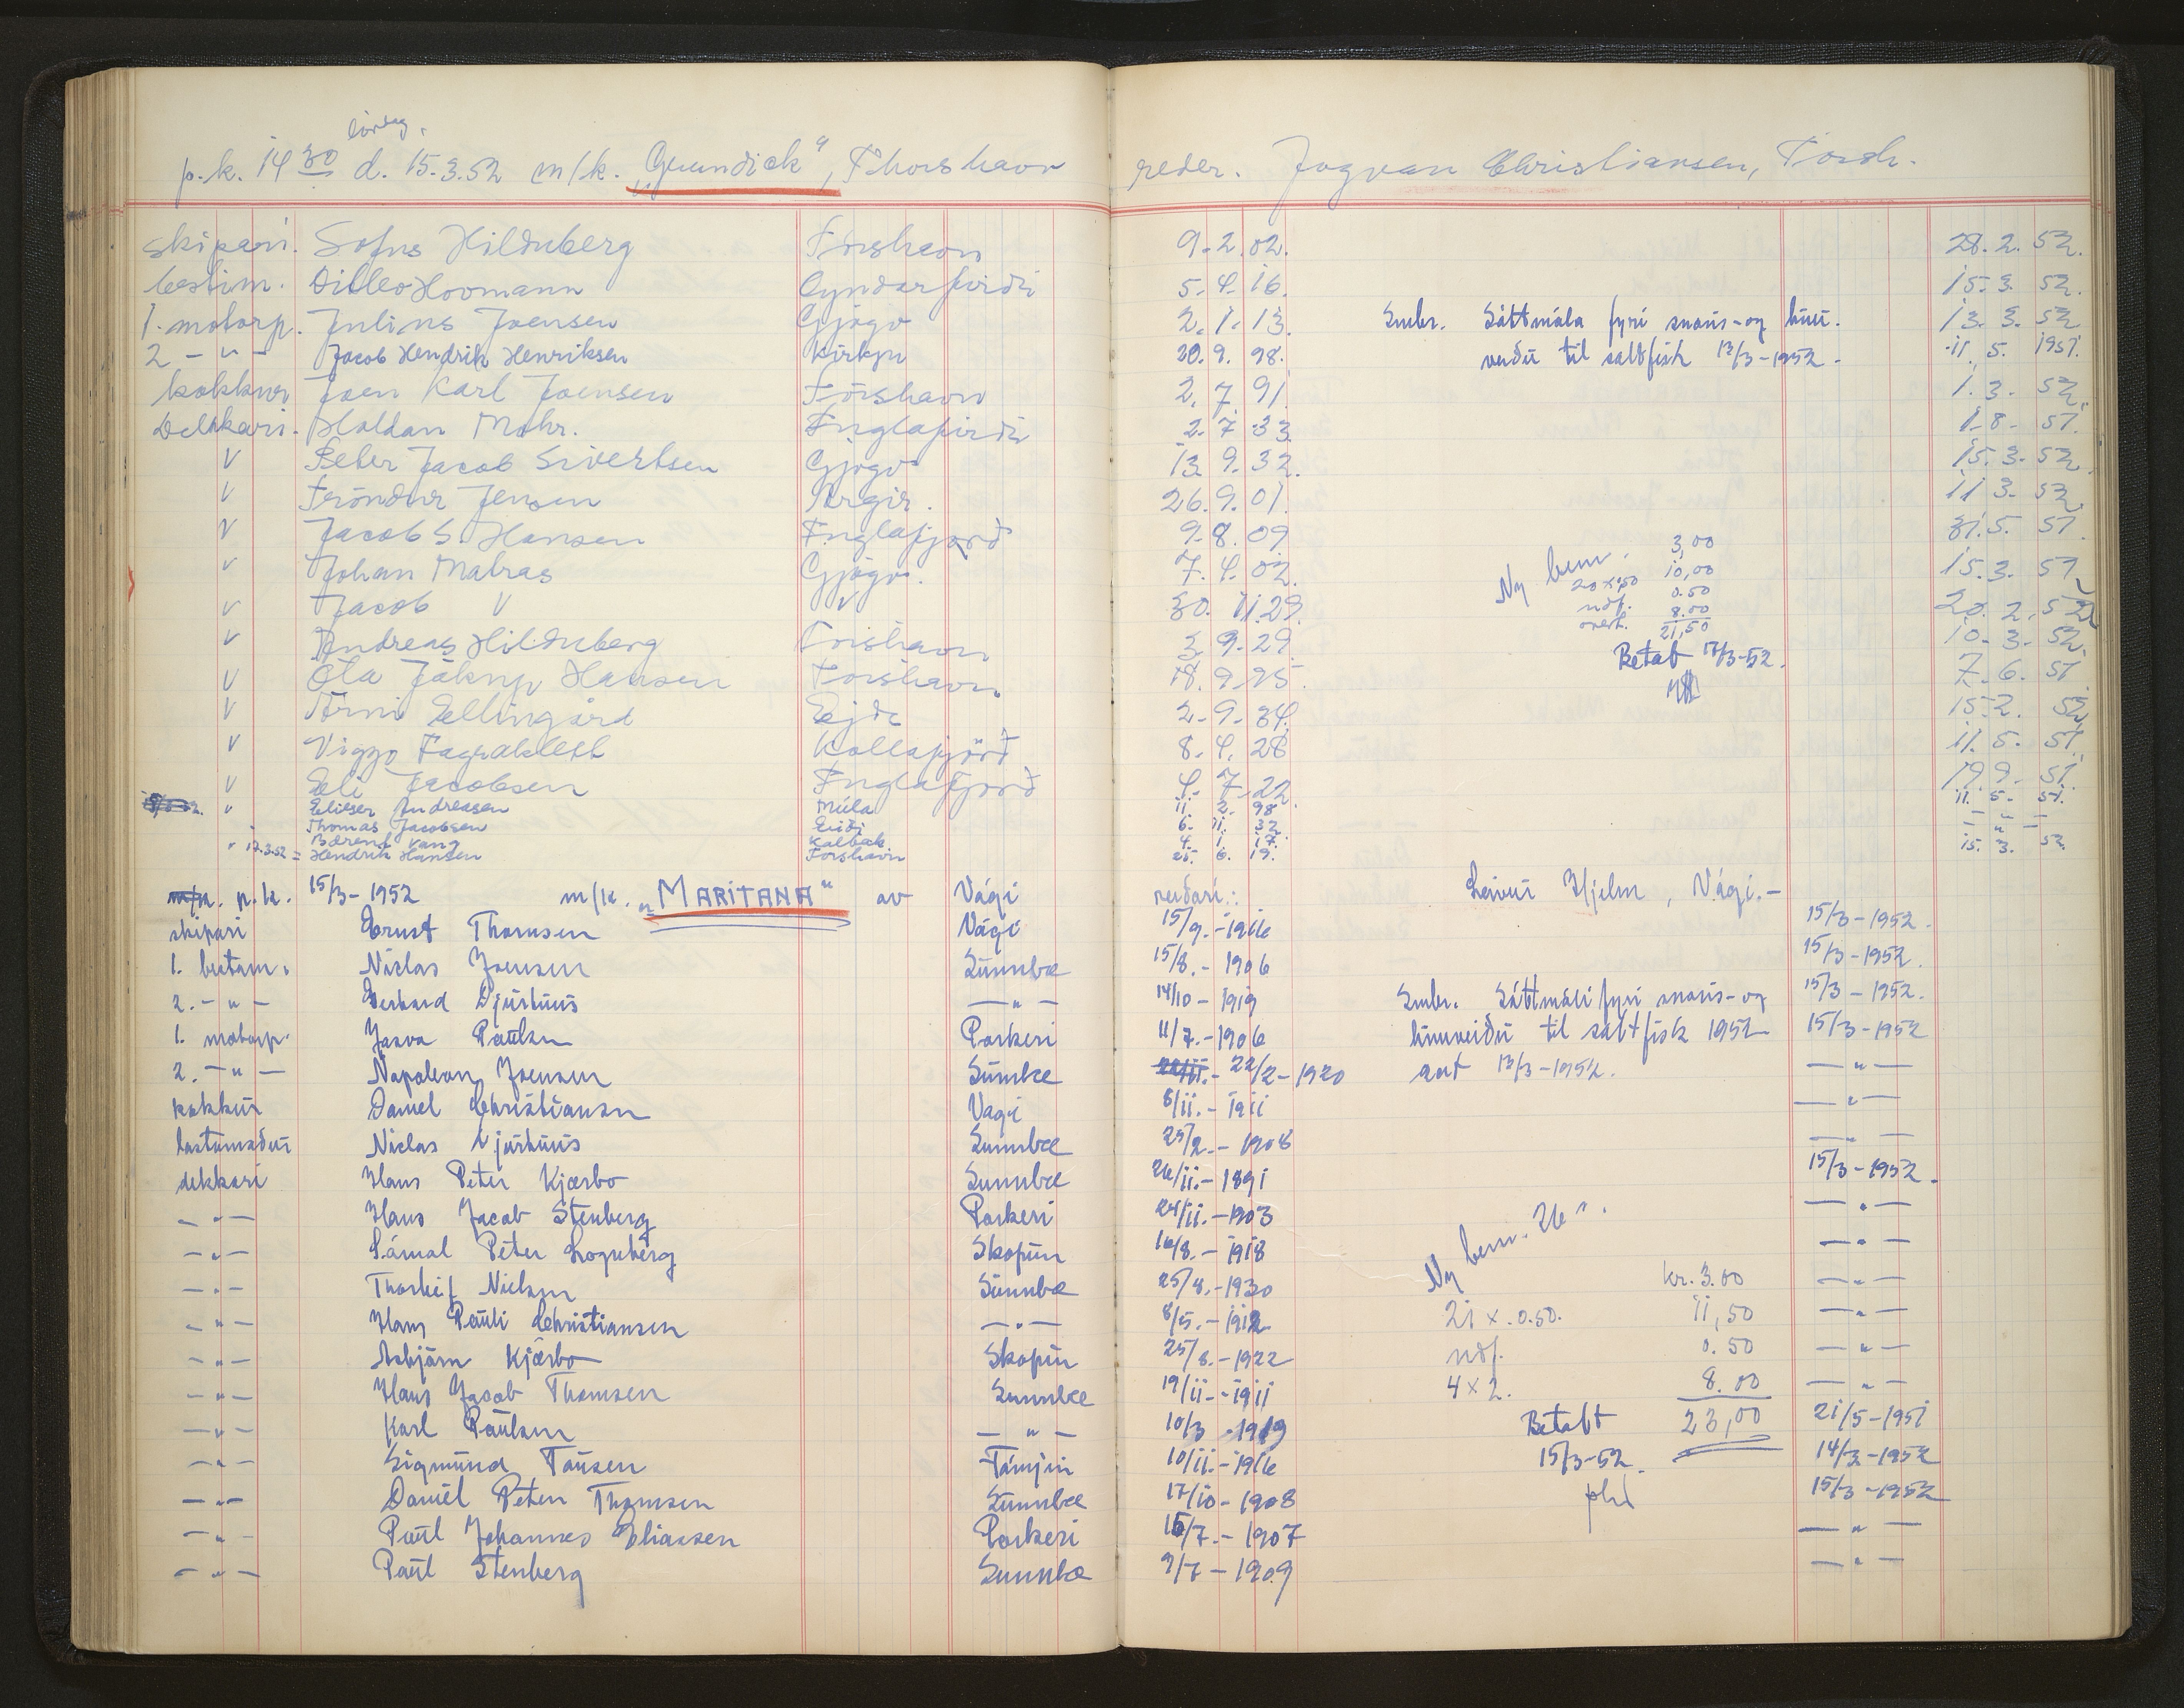 lördag.
p.k. 14 30 d. 15.3.52 m/k. „Grundick“, Thorshavn reder. Jogvan Christiansen, Torsh.
skipari. Sofus Hilduberg Torshavn 9.2.02. 28.2.52.
bestim. Ditlev Hovmann Fyndarfirdi 5.4.16. 15.3.52.
1. motorp. Julius Joensen Gjógv 2.1.13. Smbr. Sáttmála fyri snøris-og línu- 13.3.52
2 - " - Jacob Hendrik Henriksen Kirkju 20.9.98. veiðu til saltfisk 12/3-1952. 11.5.1951.
kokkur Joen Karl Joensen Tórshavn 2.7.91 1.3.52.
Dekkari. Haldan Mohr. Fuglafirdi 2.7.33 1.8.51.
v Peter Jacob Sivertsen Gjógv 13.9.32. 15.3.52.
v Tróndur Jensen Argir. 26.9.01. 11.3.52.
v Jacob S. Hansen Fuglafjørð 9.8.09 31.5.51.
Ny bem. 3,00
v Johan Matras Gjógv. 7.4.02. 20 x 50 10,00 15.3.51
v Jacob v v 30.11.29. ndf. 0.50 20.2.52
overt. 8.00
v Andreas Hilduberg Torshavn 3.9.29. 21,50 10.3.52.
v Óla Jákup Hansen Torshavn 18.9.25. Betalt 17/3-52. 7.6.51
v Árni Ellingård Ejde 2.9.34. 15.2.52
v Viggo Fagraklett Kollafjörð 8.4.28 11.5.51.
v Eli Jacobsen Fuglafjorð 4.7.22. 19.9.51.
v Elieser Andreasen Múla 11.2.98 11.5.51.
Thomas Jacobsen Eiði 6.11.32 - " -
Bærent Vang Kalbak 4.1.17. - " -
v 17.3.52 = Hendrik Hansen Torshavn 25.6.19. 15.3.52
p.k. 15/3-1952 m/k. „MARITANA“ av Vági reiðari: Leivur Hjelm, Vági.-
skipari Ernst Thomsen Vági 15/9.-1916 15/3-1952.
1. bestam. Niclas Joensen Sunnbø 15/8.-1906 15/3-1952.
2. - " - Gerhard Djurhuus — " — 14/10-1919 Smbr. Sáttmáli fyri snøris-og 15/3-1952.
1. motorp. Jasva Poulsen Porkeri 11/7.-1906 línuveiðu til saltfisk 1952 15/3-1952
2. — " — Napoleon Joensen Sumbø 22/2-1920 dat 12/3-1952. — " —
kokkur Daniel Christiansen Vági 8/11.-1911 — " —
lastumaður Niclas Djurhuus Sunnbø 25/2.-1908 — " —
dekkari Hans Peter Kjærbo Sunnbø 26/11.-1891 15/3-1952.
— " — Hans Jacob Stenberg Porkeri 24/11.-1903 — " —
— " — Sámal Peter Sognberg Skopun 16/8.-1918 Ny bem. 26 — " —
— " — Thorleif Nielsen Sunnbø 25/8.-1930 kr. 3.00 — " —
— " — Hans Pauli Christiansen — " — 8/5.-1912 21 x. 0.50. 11,50 — " —
— " — Asbjørn Kjærbo Skopun 25/8.-1922 ndf. 0.50 — " —
— " — Hans Jacob Thomsen Sunnbø 19/11.-1911 4 x 2. 8.00 — " —
— " — Karl Poulsen — " — 10/3-1919 Betalt 23,00 21/5-1951
— " — Sigmund Tausen Támjin 10/11.-1916 15/3-52. 14/3-1952
— " — Daniel Peter Thomsen Sunnbø 17/10-1908 15/3-1952
— " — Poul Johannes Eliassen Porkeri 15/7.-1907 — " —
— " — Poul Stenberg Sunnbø 9/7-1909 — " —